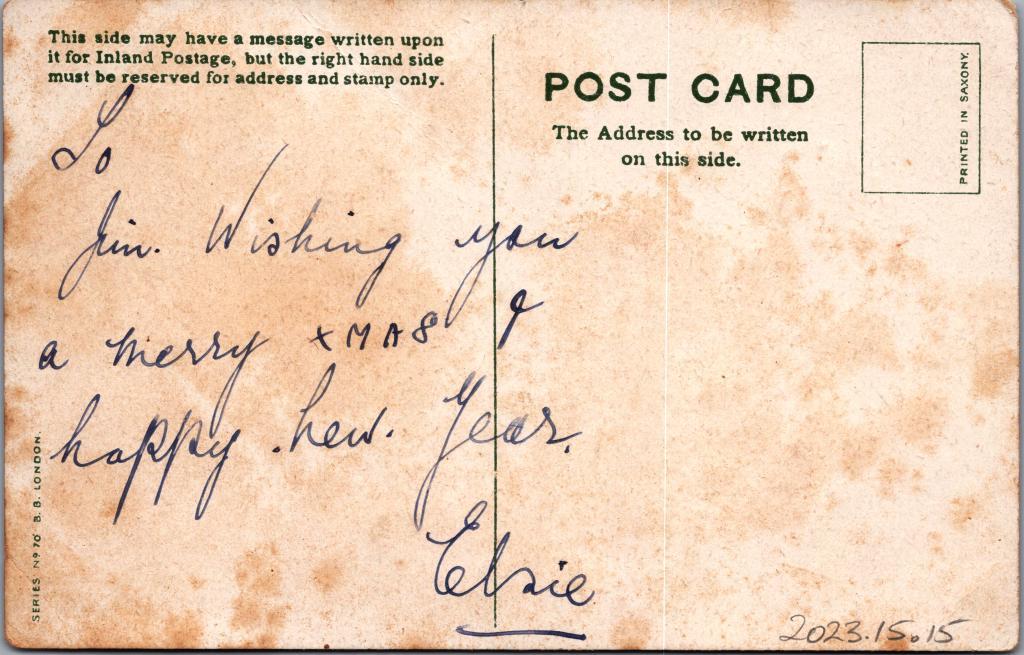 This side may have a message written upon
it for Inland Postage, but the right hand side
must be reserved for address and stamp only.
To
Jim. Wishing you
a merry XMAS &
happy .new. Year.
Elsie
SERIES Nº 70 B.B. LONDON.
POST CARD
The Address to be written
on this side.
PRINTED IN SAXONY.
2023.15.15